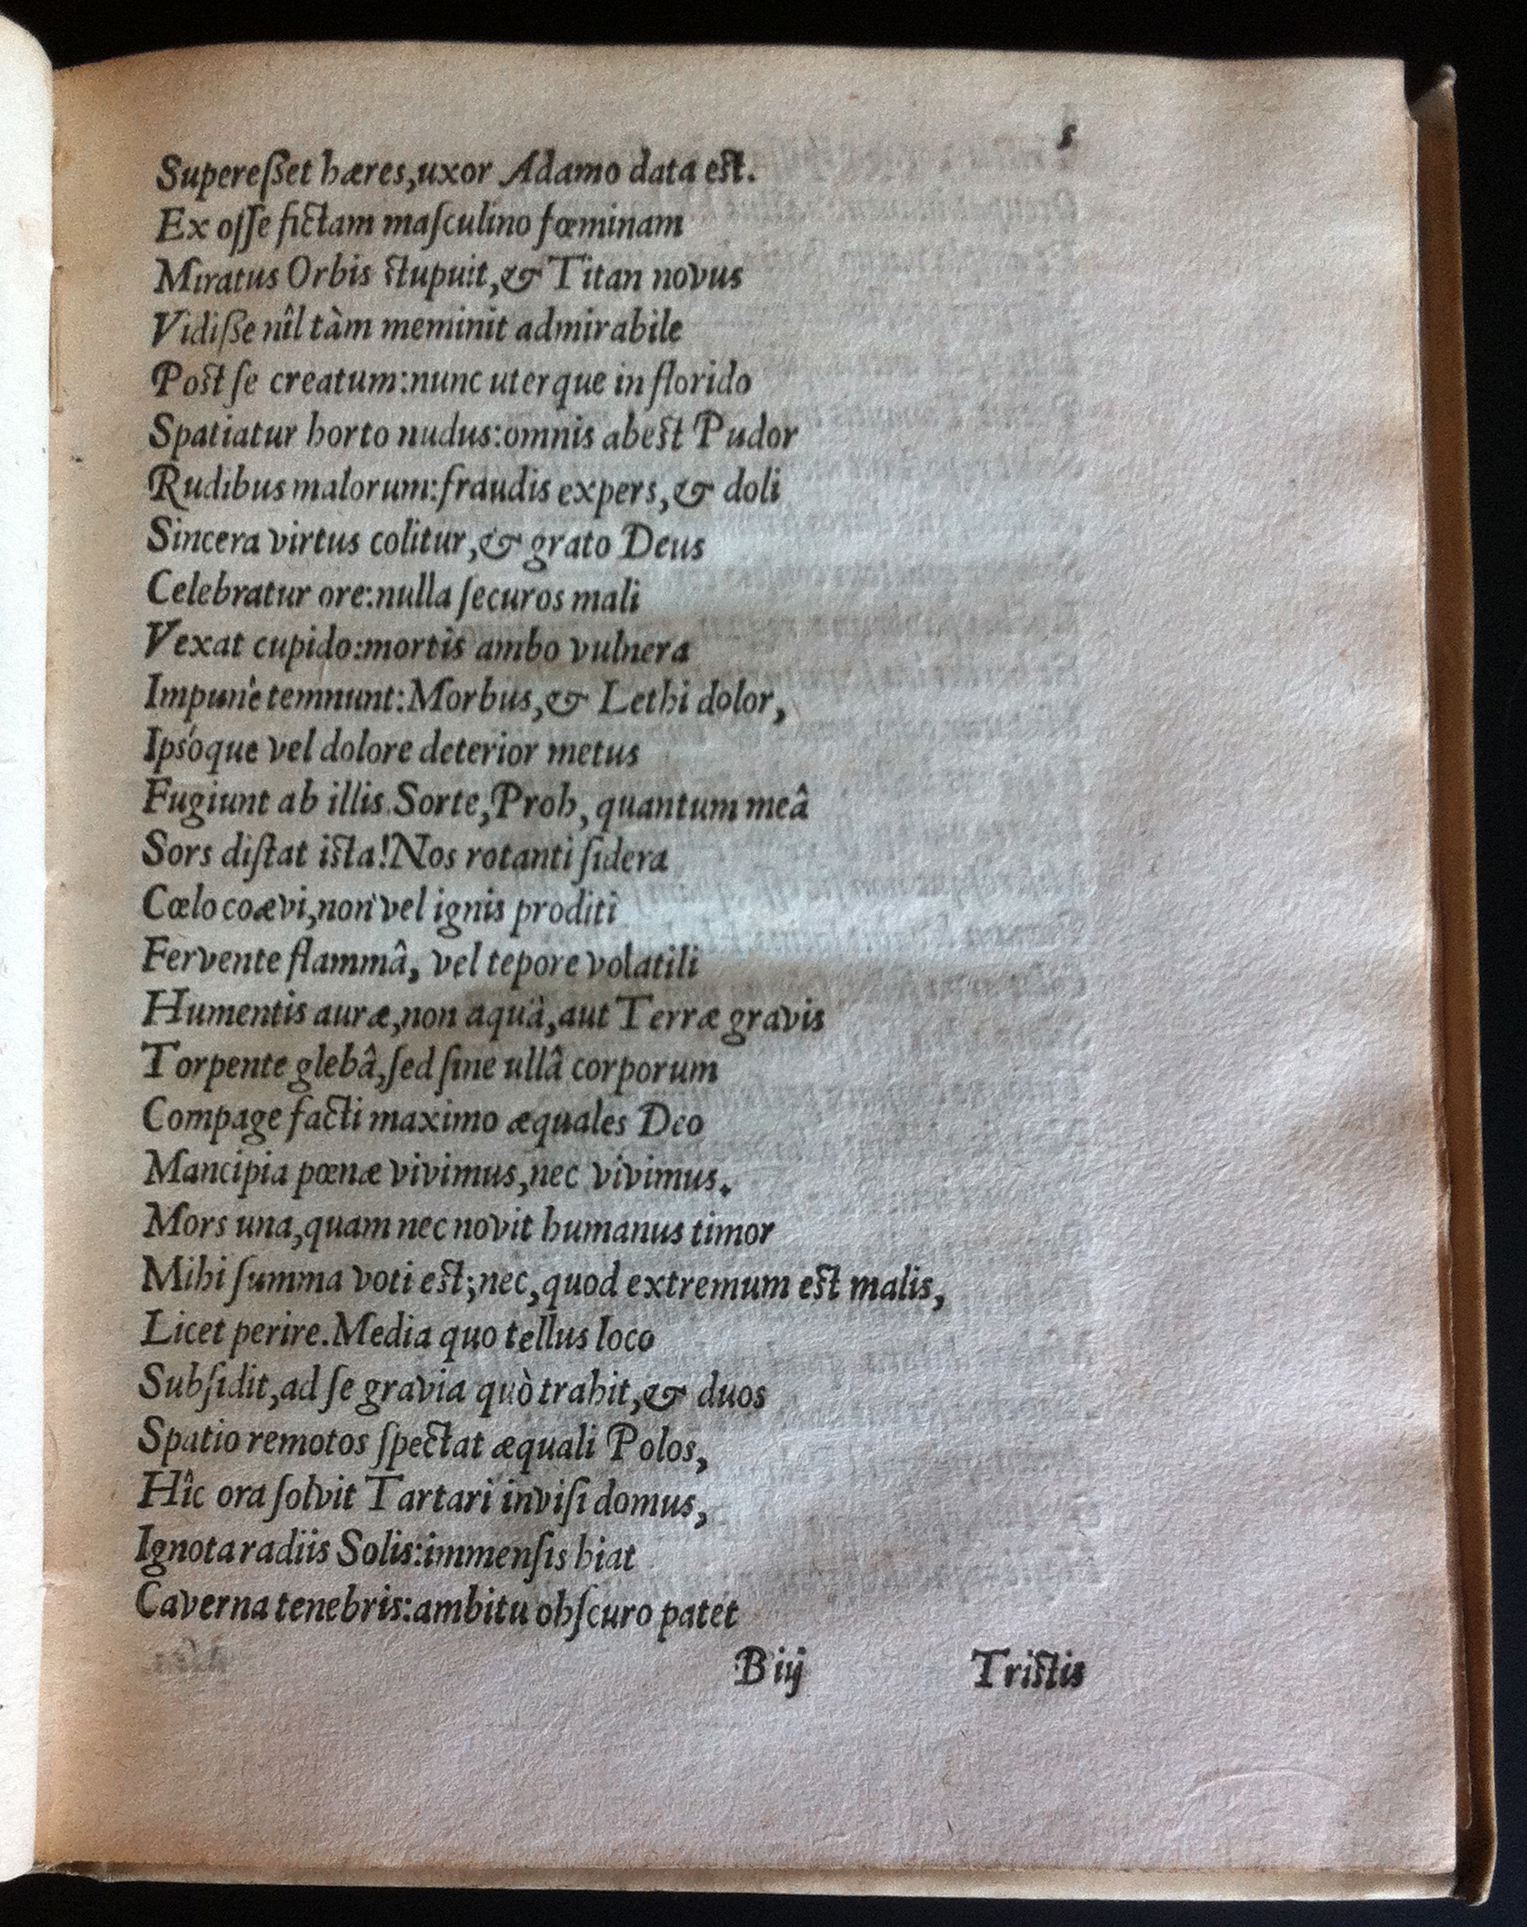 5
Supereſſet hæres,uxor Adamo data est.
Ex oſſe fictam maſculino fœminam
Miratus Orbis stupuit,& Titan novus
Vidiſſe nîl tàm meminit admirabile
Post ſe creatum:nunc uterque in florido
Spatiatur horto nudus:omnis abest Pudor
Rudibus malorum:fraudis expers,& doli
Sincera virtus colitur,& grato Deus
Celebratur ore:nulla ſecuros mali
Vexat cupido:mortis ambo vulnera
Impunè temnunt:Morbus,& Lethi dolor,
Ipsóque vel dolore deterior metus
Fugiunt ab illis.Sorte,Proh, quantum meâ
Sors diſtat ista!Nos rotanti ſidera
Cœlo coævi,non vel ignis proditi
Fervente flammâ, vel tepore volatili
Humentis auræ,non aquà,aut Terræ gravis
Torpente glebâ,ſed ſine ullâ corporum
Compage facti maximo æquales Deo
Mancipia pœnæ vivimus,nec vivimus.
Mors una,quam nec novit humanus timor
Mihi ſumma voti est;nec,quod extremum est malis,
Licet perire.Media quo tellus loco
Subſidit,ad ſe gravia quò trahit,& duos
Spatio remotos ſpectat æquali Polos,
Hîc ora ſolvit Tartari inviſi domus,
Ignota radiis Solis:immenſis hiat
Caverna tenebris:ambitu obſcuro patet
B iij Tristis